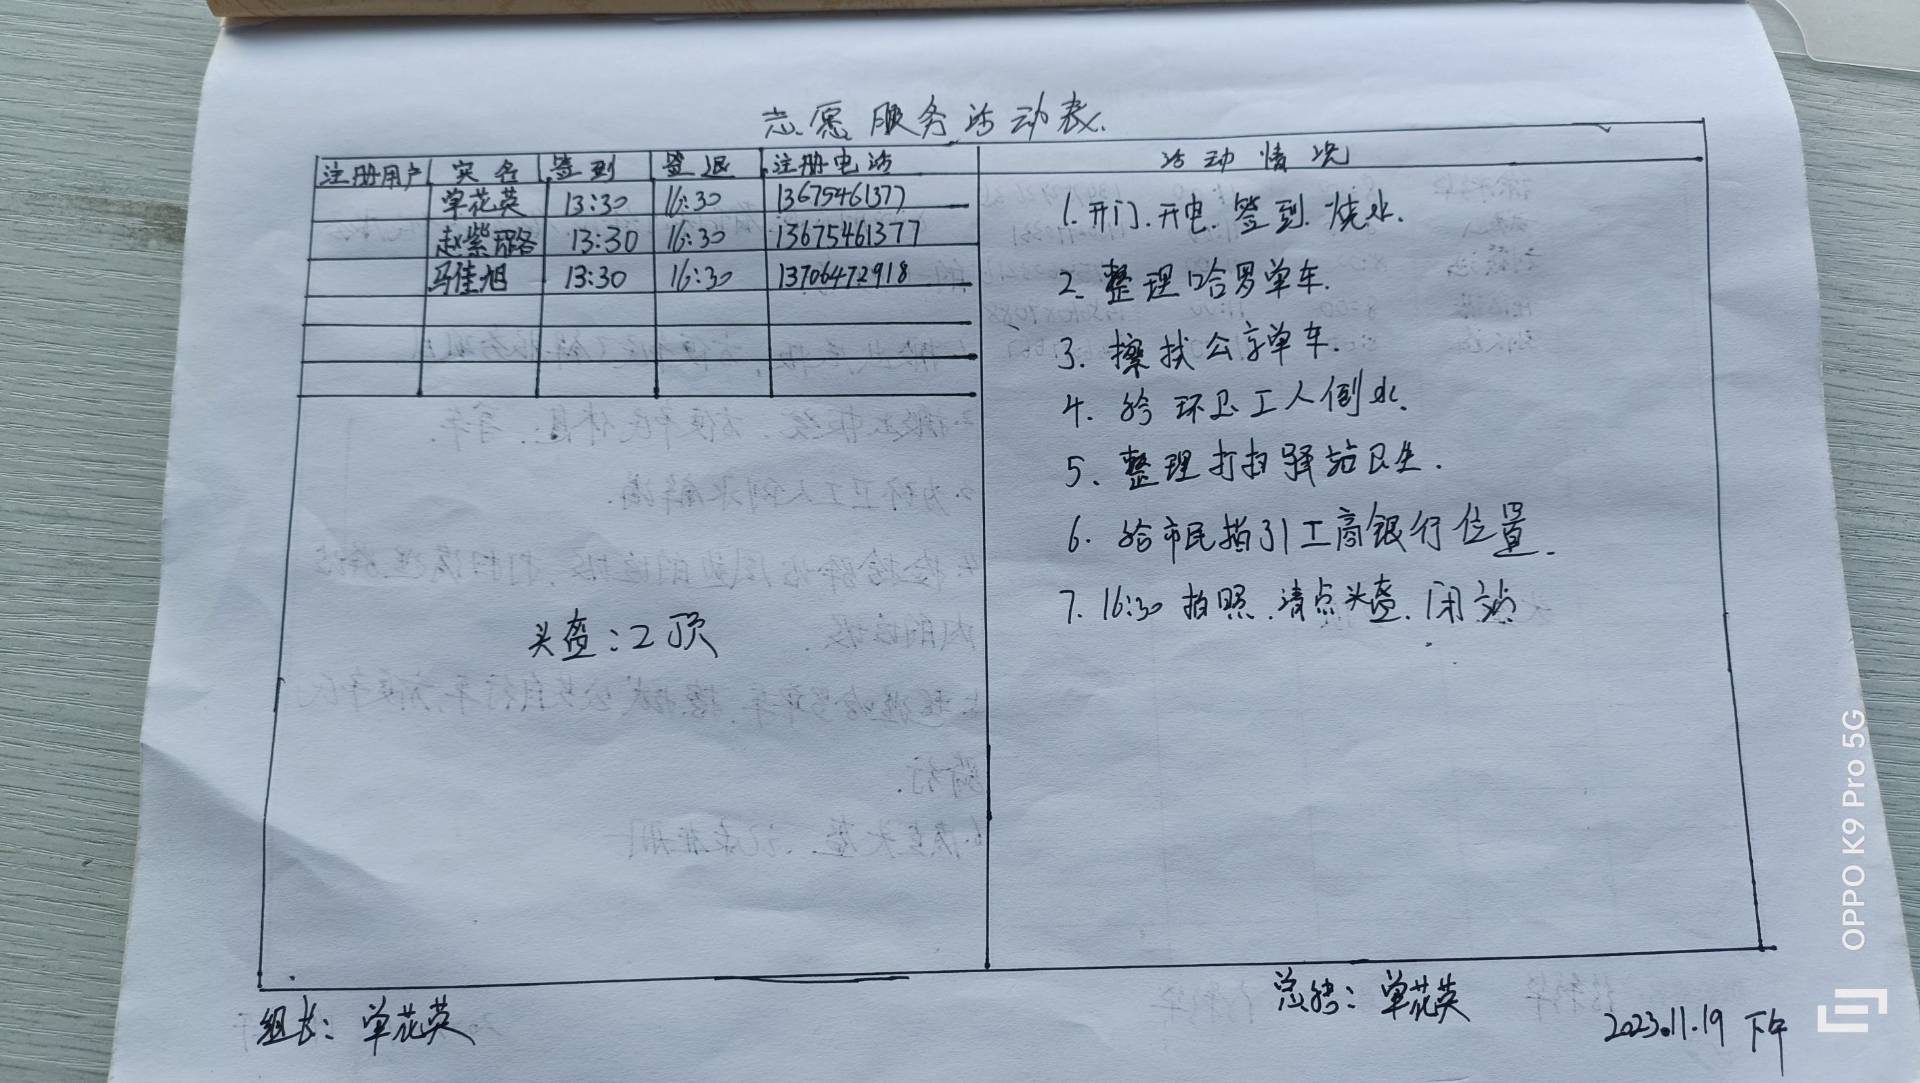 志愿服务活动表.
注册用户 实名 签到 签退 注册电话
单花英 13:30 16:30 13675461377
赵紫璐 13:30 16:30 13675461377
马佳旭 13:30 16:30 13706472918
头盔:2顶
活动情况
1.开门.开电.签到.烧水.
2.整理哈罗单车.
3.擦拭公享单车.
4.给环卫工人倒水.
5.整理打扫驿站卫生.
6.给市民指引工商银行位置.
7.16:30拍照.清点头盔.闭站
组长:单花英
总结:单花英
2023.11.19 下午
OPPO K9 Pro 5G